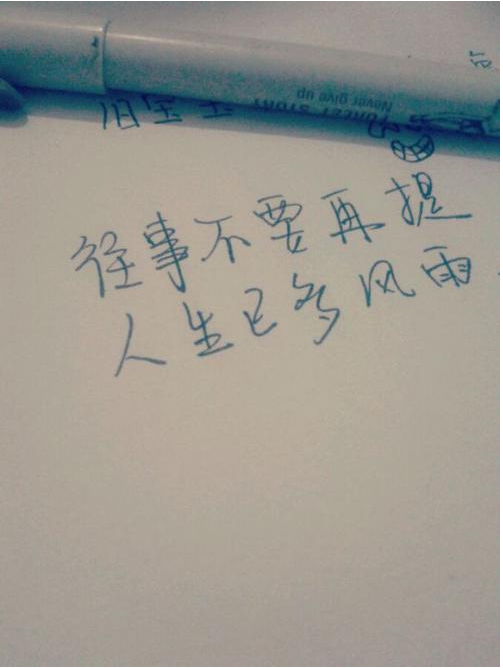 Never give up
往事不要再提
人生已多风雨